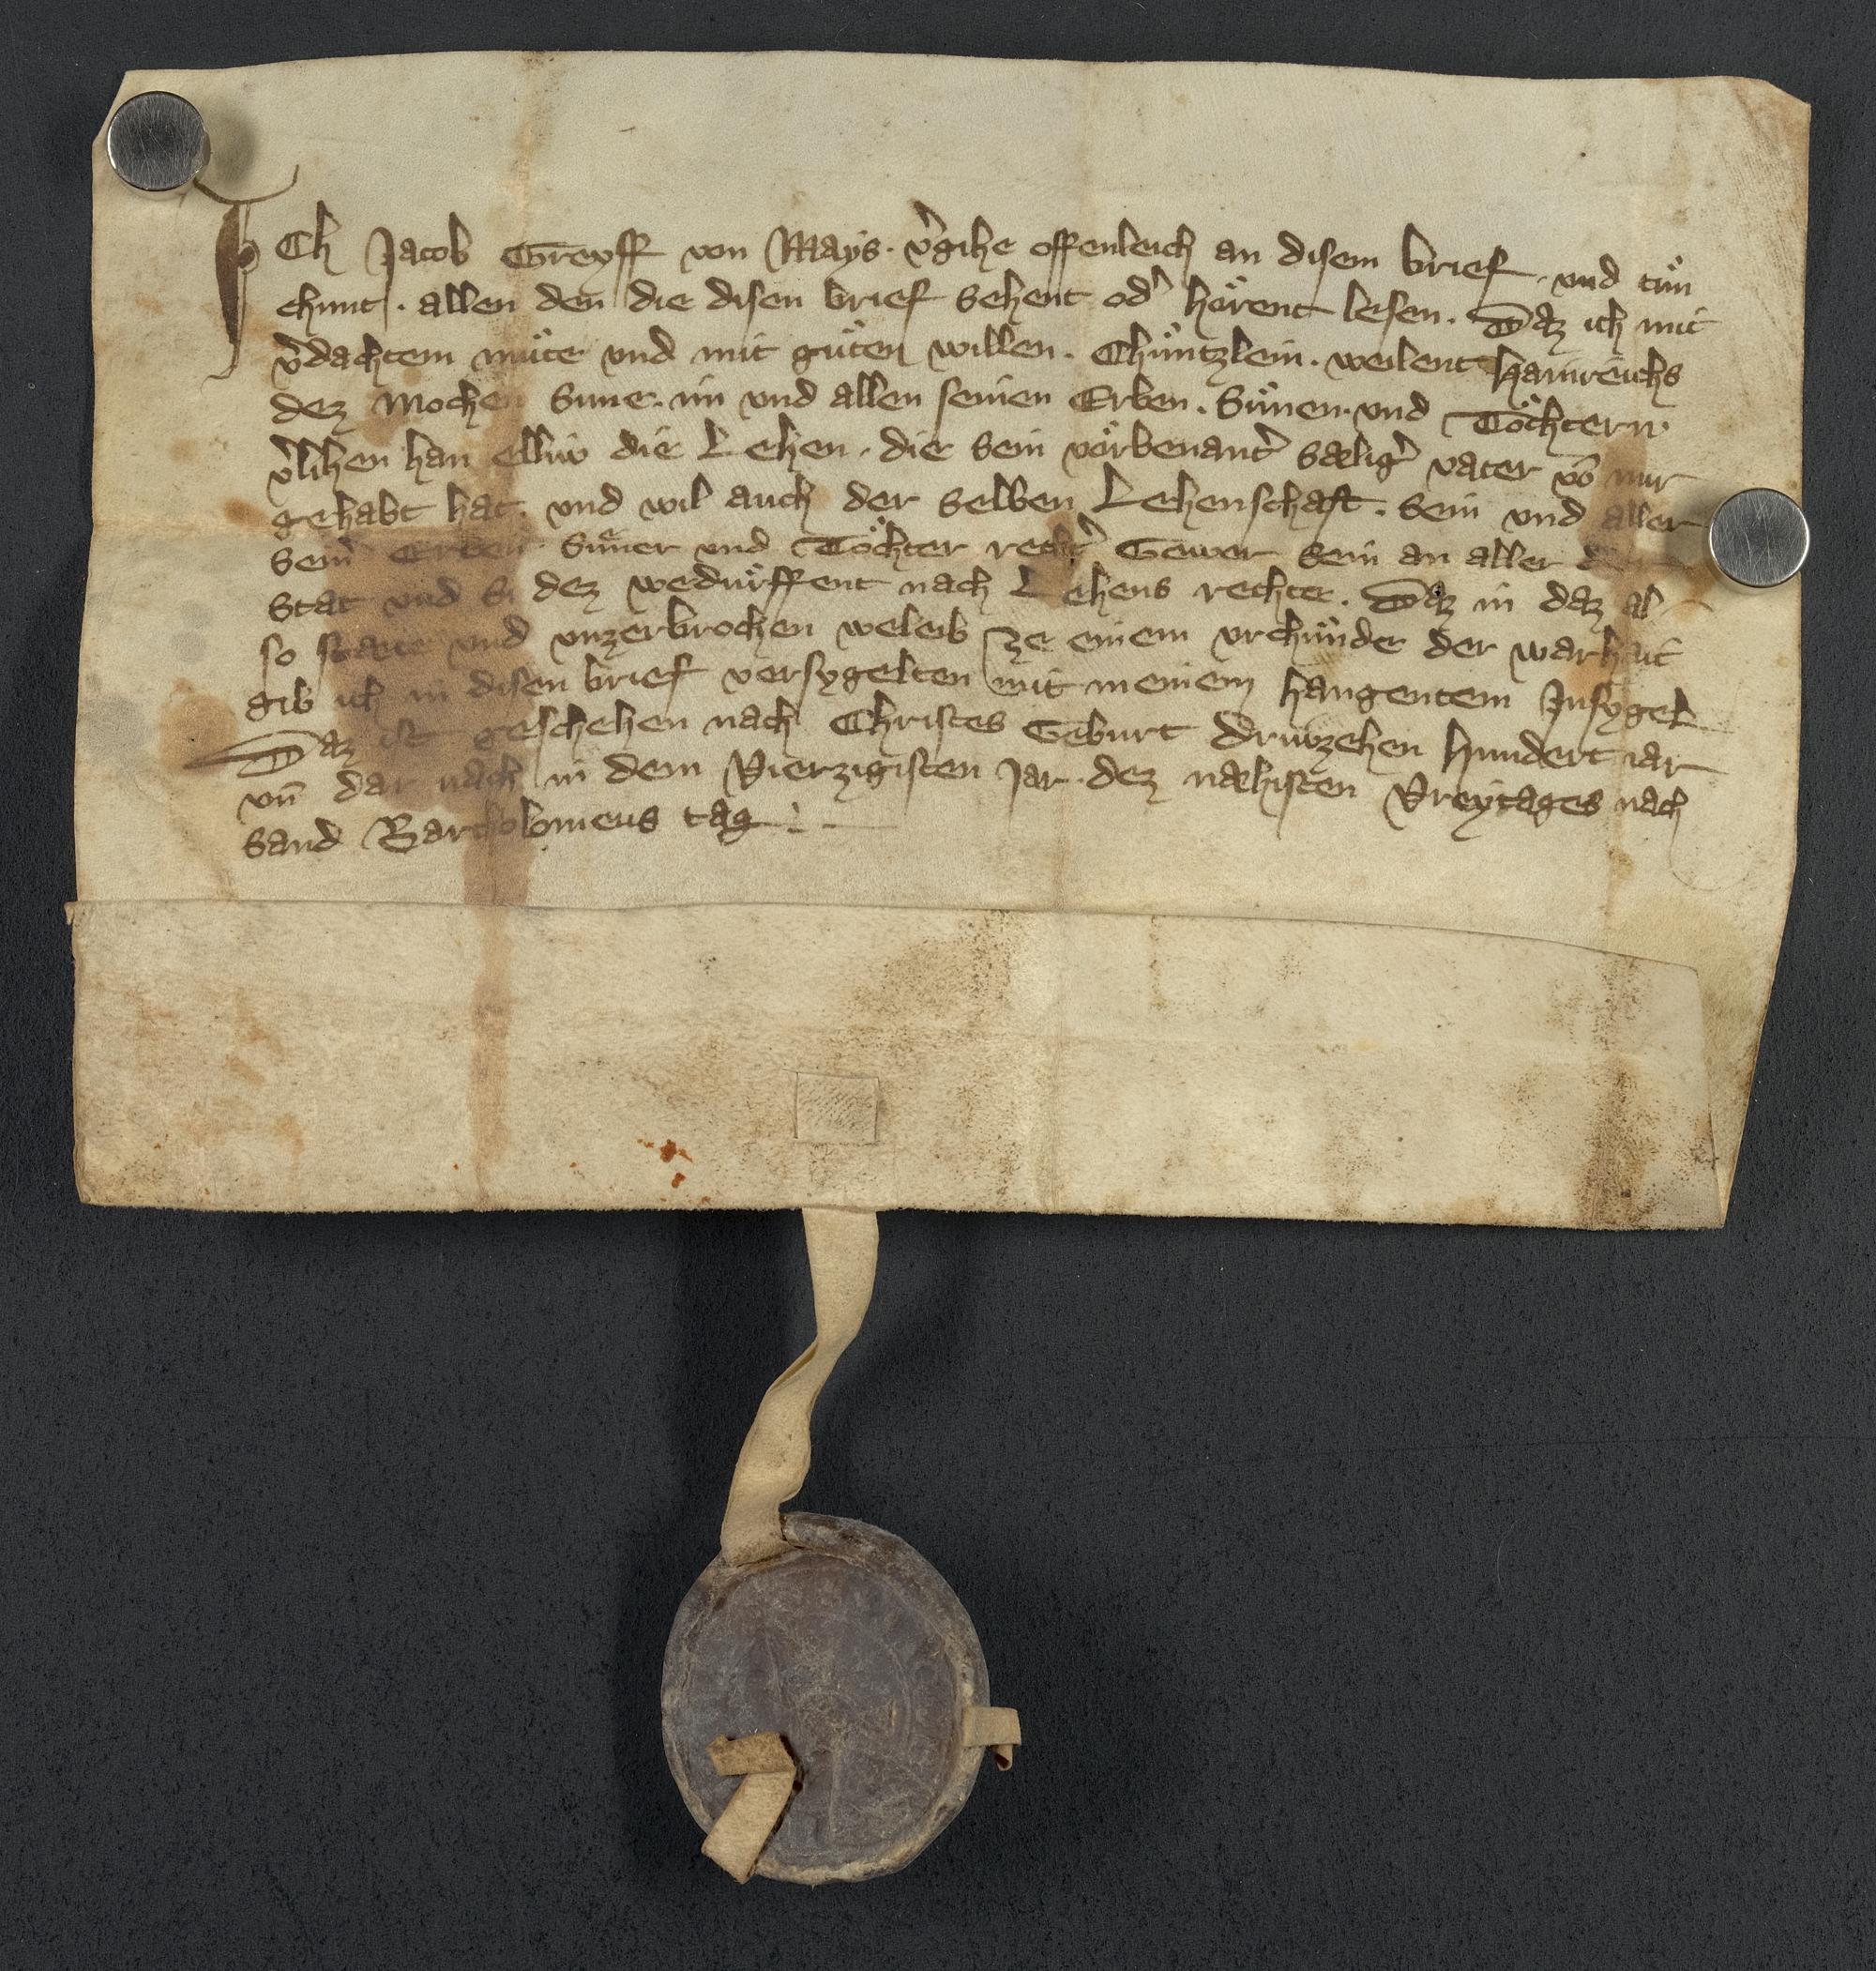 Ich Jacob Greyff von Mays · v͛gihe offenleich an disem brief · vnd tuͦn
chunt · allen den die disen brief sehent od͛ hoͤrent lesen · Daz ich mit
v͛dachtem muͦte vnd mit guͦten willen · Chuͤntzlein · weilent Hainreichs
dez Mochen Sune · im vnd allen seinen Erben · Suͤnen · vnd Toͤchtern ·
v͛lihen han elliv die Lehen · die sein voͤrbenant͛ sælig͛ vater vō mir
gehabt hat · vnd wil auch der selben Lehenschaft · sein vnd aller
sein͛ Erben · Suͤner vnd Toͤchter recht͛ Gewer sein an aller der
stat vnd si dez beduͤrffent nach Lehens rechte · Daz in daz al-
so staete vnd vnzerbrochen weleib ze einem vrchuͤnde der warhait
gib ich in disen brief versygelten mit meinem hangentem Insygel
Daz ist geschehen nach Christes Gebuͤrt driwzehen Hundert iar
vn̄ dar nach in dem Vierzigisten Jar · dez næhisten Vreytages nach
sand Bartholomeus tag